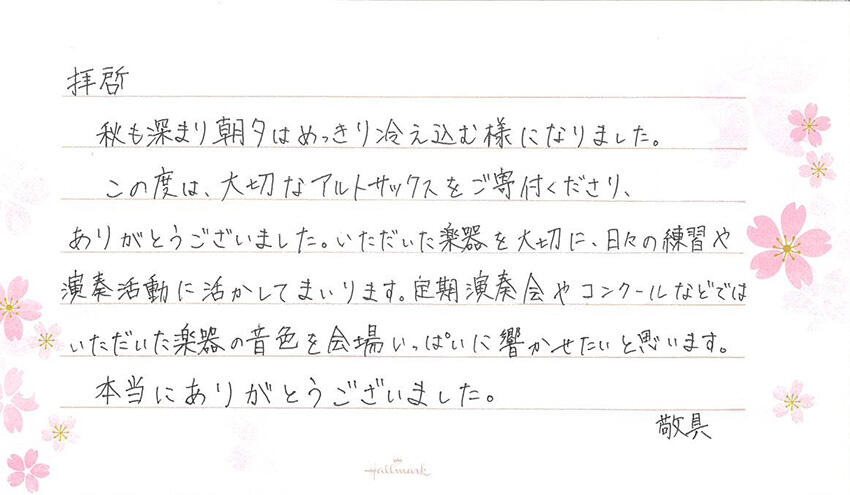 拝啓
秋も深まり朝夕はめっきり冷え込む様になりました。
この度は、大切なアルトサックスをご寄付くださり、
ありがとうございました。いただいた楽器を大切に、日々の練習や
演奏活動に活かしてまいります。定期演奏会やコンクールなどでは
いただいた楽器の音色を会場いっぱいに響かせたいと思います。
本当にありがとうございました。
敬具
Hallmark